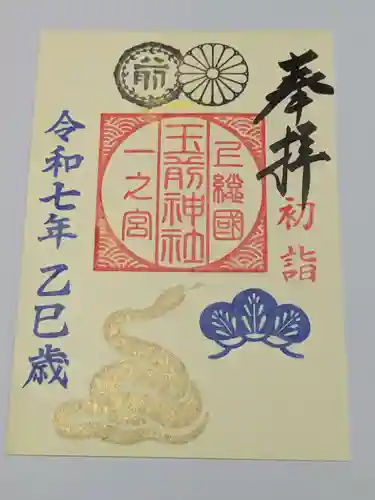 奉拝
初詣
前
上總國
玉前神社
一之宮
令和七年 乙巳歳